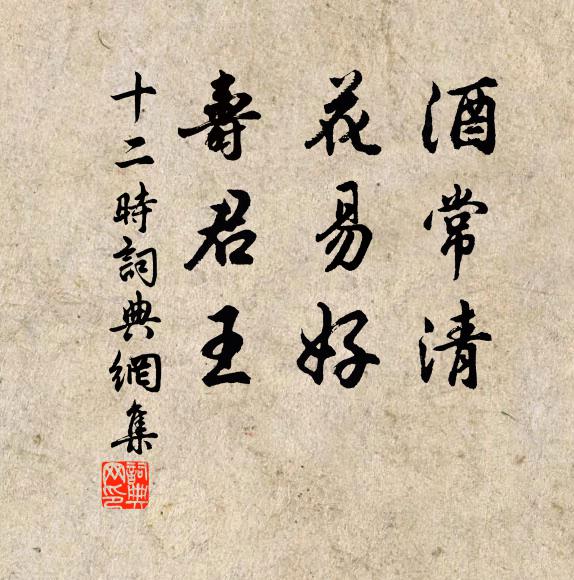 酒常清
花易好
壽君王
十二時詞典網集
詞典
网印